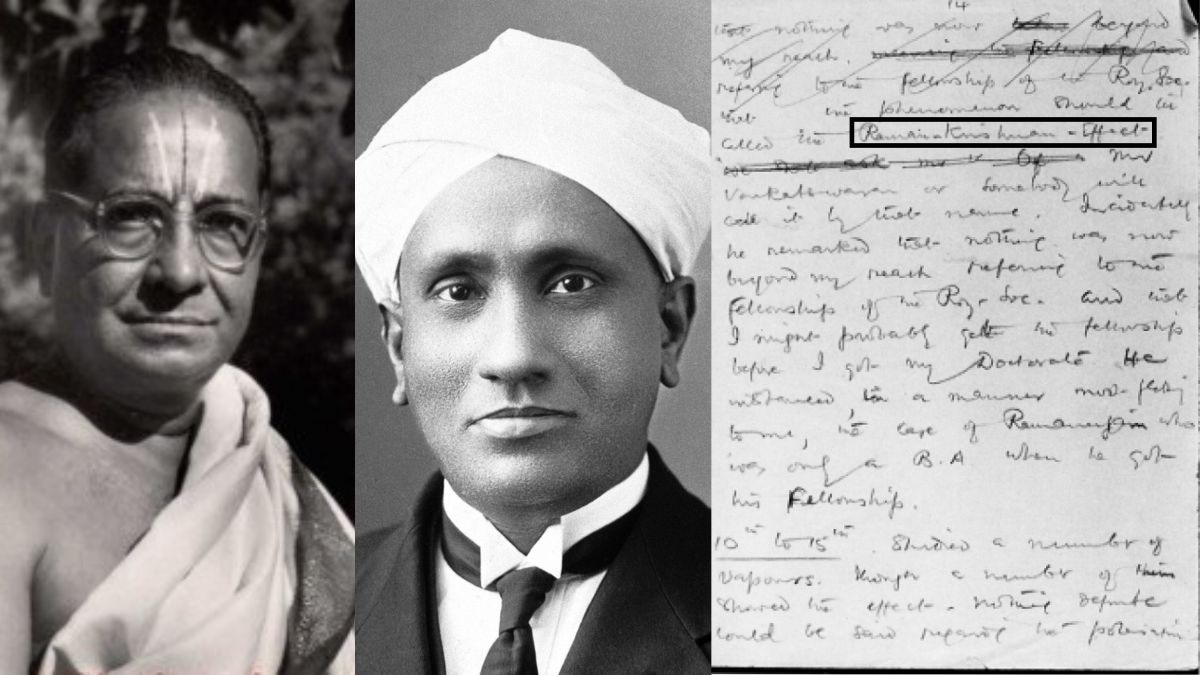 14
that nothing was now beyond
my reach.
referring to the fellowship of the Roy. Soc.
that the phenomenon should be
called the Raman-Krishnan-Effect
Mr
Venkateswaran or somebody will
call it by that name. Incidentally
he remarked that nothing was now
beyond my reach referring to the
fellowship of the Roy. Soc. and that
I might probably get the fellowship
before I got my Doctorate He
instanced, in a manner most flattering
to me, the case of Ramanujan who
was only a B.A when he got
his Fellowship.
10th to 15th. Studied a number of
vapours. though a number of them
showed the effect - nothing definite
could be said regarding the polarisation